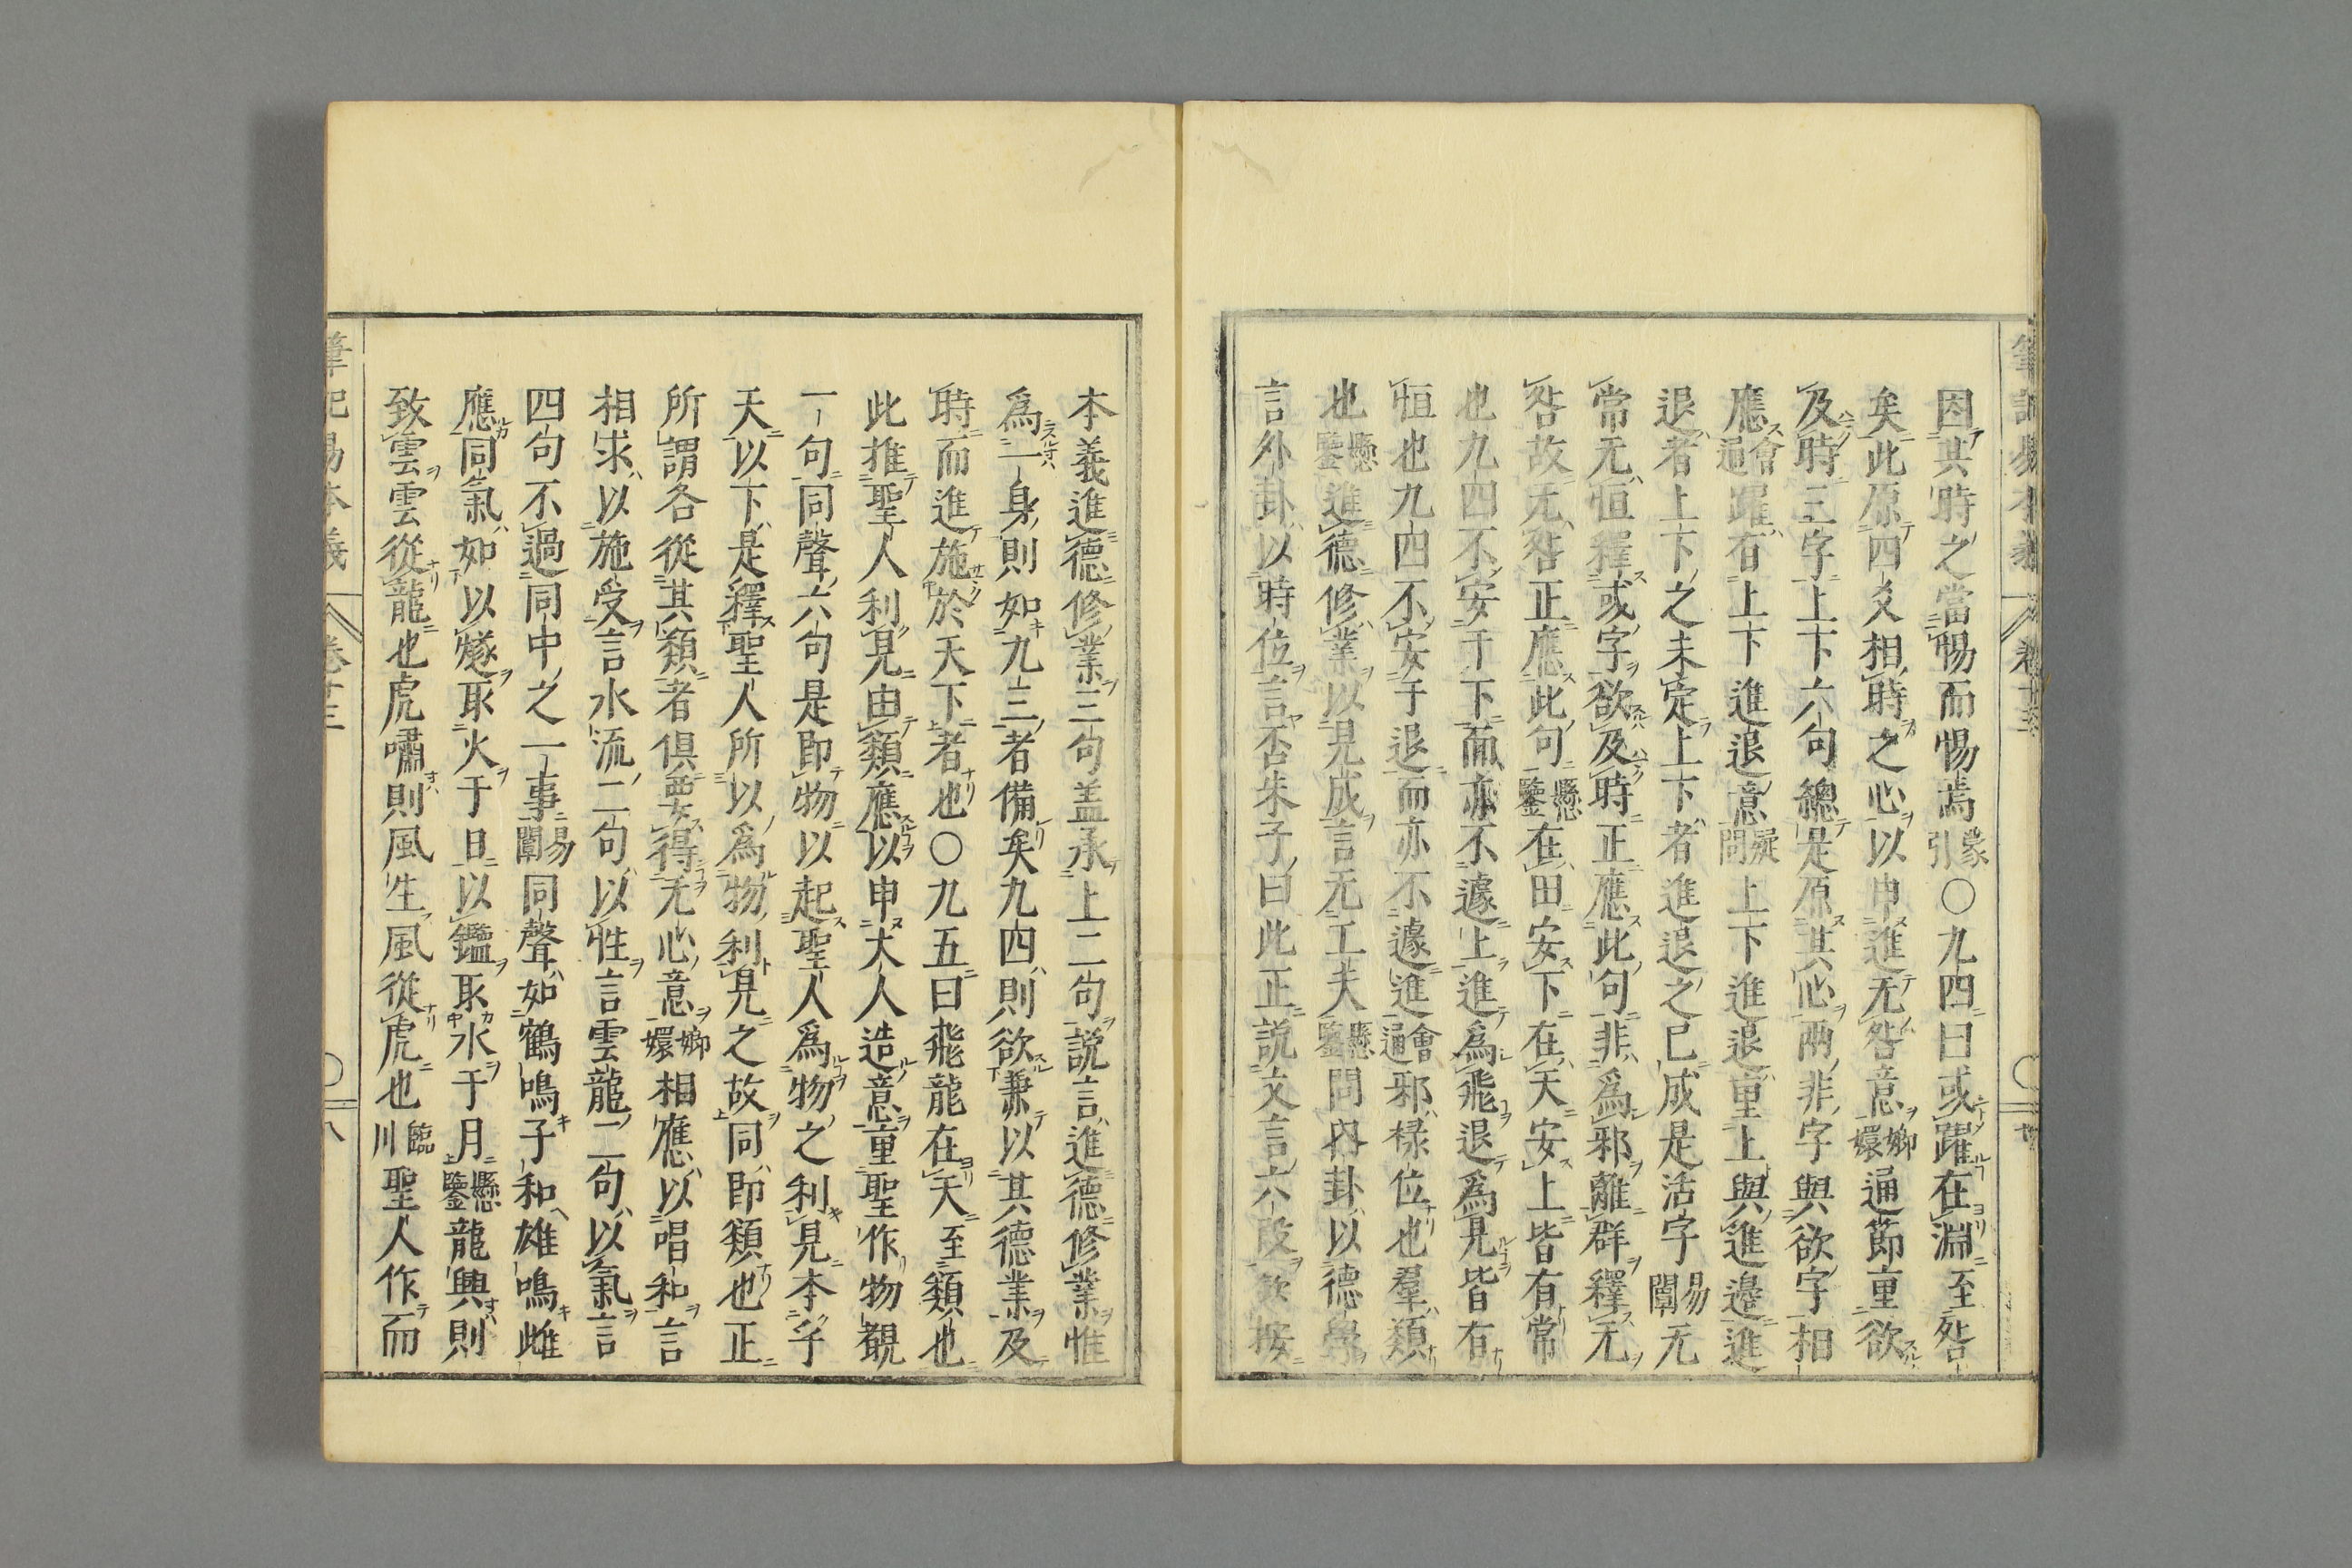 因其時之當惕而惕焉蒙引○九四曰或躍在淵至咎
矣此原四爻相時之心以申進无咎意嫏嬛通節重欲
及時三字上下六句總是原其心兩非字與欲字相
應會通躍有上下進退意疑問上下進退重上與進邊進
退者上下之未定上下者進退之已成是活字易闡无
常无恒釋或字欲及時正應此句非爲邪離群釋无
咎故无咎正應此句懸鑒在田安下在天安上皆有常
也九四不安于下而亦不遽上進爲飛退爲見皆有
恒也九四不安于退而亦不遽進會通邪㯟位也羣類
也懸鑒進德修業以見成言无工夫懸鑒問內卦以德學
言外卦以時位言否朱子曰此正説文言六段欸按
本義進德修業三句盖承上二句說言進德修業惟
爲一身則如九三者備矣九四則欲兼以其德業及
時而進施於天下者也○九五曰飛龍在天至類也
此推聖人利見由類應以申大人造意重聖作物覩
一句同聲六句是即物以起聖人爲物之利見本乎
天以下是釋聖人所以爲物利見之故同即類也正
所謂各從其類者俱要得无心意嫏嬛相應以唱和言
相求以施受言水流二句以性言雲龍二句以氣言
四句不過同中之一事易闡同聲如鶴鳴子和雄鳴雌
應同氣如以燧取火于日以鑑取水于月懸鑒龍興則
致雲雲從龍也虎嘯則風生風從虎也臨川聖人作而
筆記易本義 卷十三 八